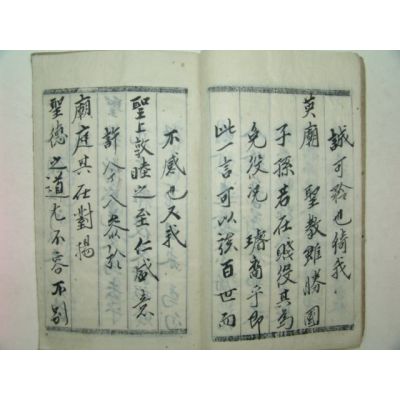 誠可矜也猗我
英廟 聖敎雖勝國
子孫若在賤役其爲
免役况 璿裔乎卽
此一言可以該百世而
不感也又我
聖上敦睦之至仁盛意
許令入參於
廟庭其在對揚
聖德之道尤不容不別